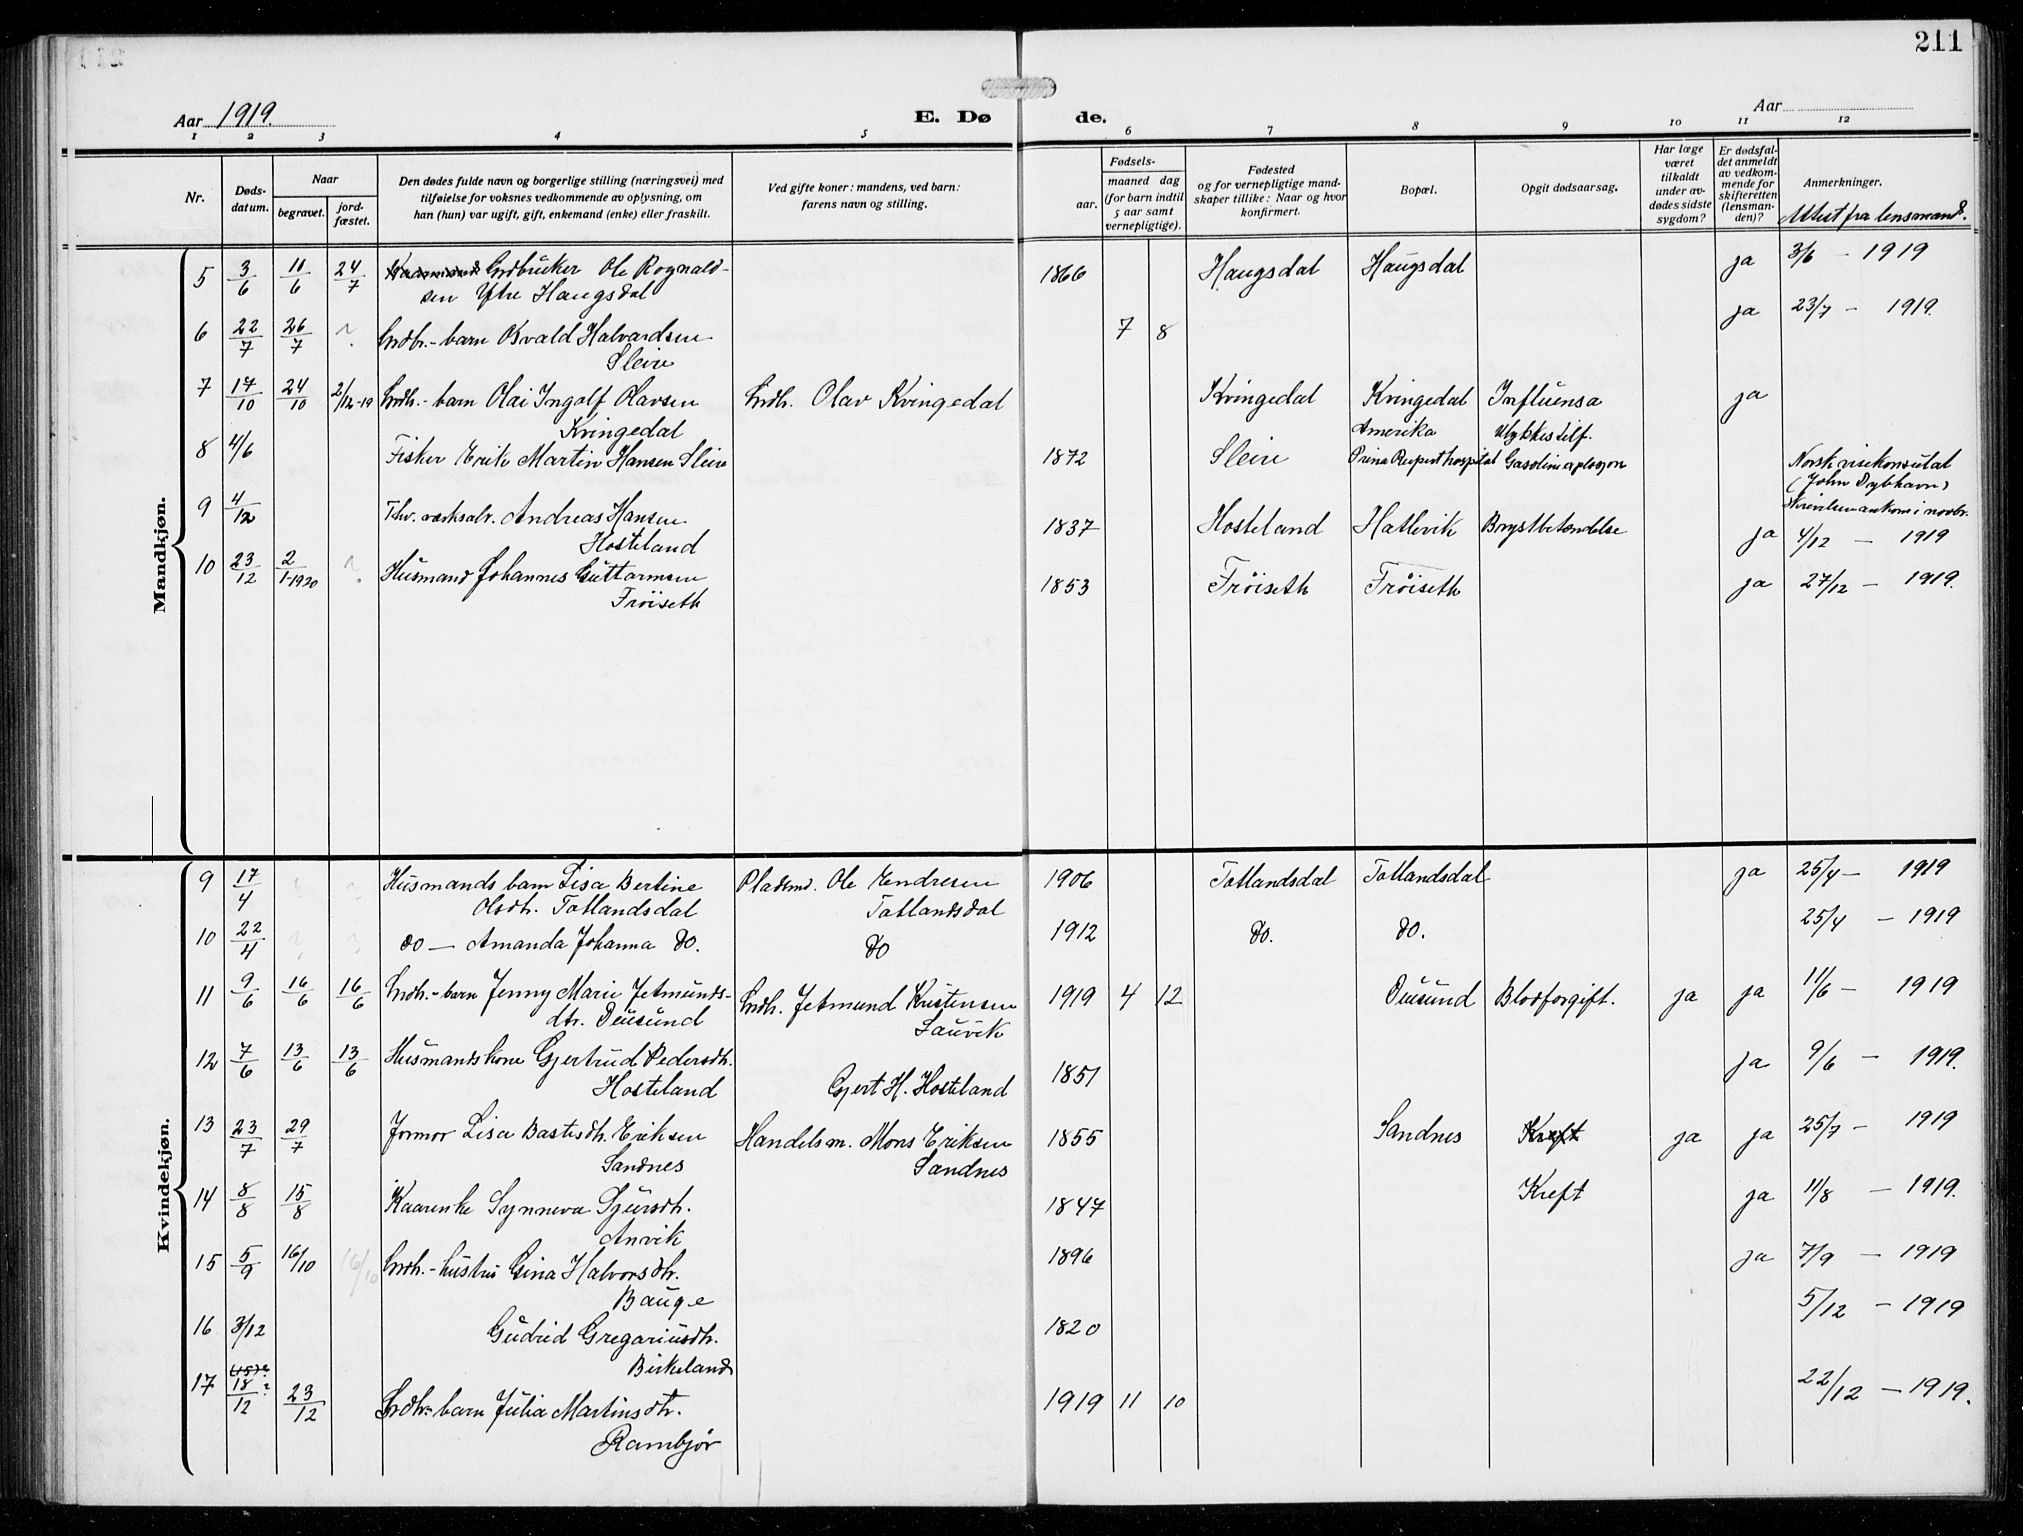 211
Aar 1919.
E. Døde.
Aar
1 2 3 4 5 6 7 8 9 10 11 12
Nr.
Døds-
datum.
Naar
begravet.
jord-
fæstet.
Den dødes fulde navn og borgerlige stilling (næringsvei) med
tilføielse for voksnes vedkommende av oplysning, om
han (hun) var ugift, gift, enkemand (enke) eller fraskilt.
Ved gifte koner: mandens, ved barn:
farens navn og stilling.
Fødsels-
aar.
maaned dag
(for barn indtil
5 aar samt
vernepligtige).
Fødested
og for vernepligtige mand-
skaper tillike: Naar og hvor
konfirmert.
Bopæl.
Opgit dødsaarsag.
Har læge
været
tilkaldt
under av-
dødes sidste
sygdom?
Er dødsfal-
det anmeldt
av vedkom-
mende for
skifteretten
(lensman-
den)?
Anmerkninger.
Attest fra lensmand.
Mandkjøn.
5 3/6 11/6 24/7 Grdbruker Ole Rognald- 1866 Haugsdal Haugsdal ja 3/6 - 1919
sen Ytre Haugsdal
6 22/7 26/7 ? Grdbr.-barn Osvald Halvardsen 7 8 ja 23/7 - 1919.
Sleire
7 17/10 24/10 2/12-19 Grdbr.-barn Olai Ingolf Olavsen Grdbr. Olav Kvingedal Kvingedal Kvingedal Influensa ja
Kvingedal
8 4/6 Fisker Erik Martin Hansen Sleire 1872 Sleire Amerika Ulykkestilf.
Prins Rupert hospital Gasolinexplosjon Norsk visekonsulat
(John Dybhavn)
Skrivelsen ankom i novbr.
9 4/12 Andreas Hansen 1837 Hosteland Hatlevik Brystbetændelse ja 4/12 - 1919
Hosteland
10 23/12 2/1-1920 ? Husmand Johannes Guttormsen 1853 Frøiseth Frøiseth ja 27/12 - 1919.
Frøiseth
Kvindekjøn.
9 17/4 ? ? Husmands barn Lisa Bertine Pladsmd. Ole Endresen 1906 Totlandsdal Totlandsdal ja 25/4 - 1919
Olsdtr. Totlandsdal Totlandsdal
10 22/4 ? ? do - Amanda Johanna do. do 1912 do. do. 25/4 - 1919
11 9/6 16/6 16/6 Grdbr.-barn Jenny Marie Jetmunds- Grdbr. Jetmund Kristensen 1919 4 12 Duesund Blodforgift. ja ja 11/6 - 1919
dtr. Duesund Lauvik
12 7/6 13/6 13/6 Husmandskone Gjertrud Pedersdtr. 1851 ja 9/6 - 1919.
Hosteland Gjert H. Hosteland
13 23/7 29/7 Jormor Lisa Bastesdtr. Eriksen Handelsm. Mons Eriksen 1855 Sandnes Kreft ja ja 25/7 - 1919
Sandnes Sandnes
14 8/8 15/8 Kaarenke Synneva Sjursdtr. 1847 Kreft ja 11/8 - 1919.
Anvik
15 5/9 16/10 16/10 Grdbr.-hustru Gina Halvorsdtr. 1896 ja 7/9 - 1919
Bauge
16 3/12 Gudrid Gregariusdtr. 1820 5/12 - 1919
Birkeland
17 (15)? 18/12? 23/12 Grdbr.-barn Julia Martinsdtr. 1919 11 10 22/12 - 1919.
Rambjør